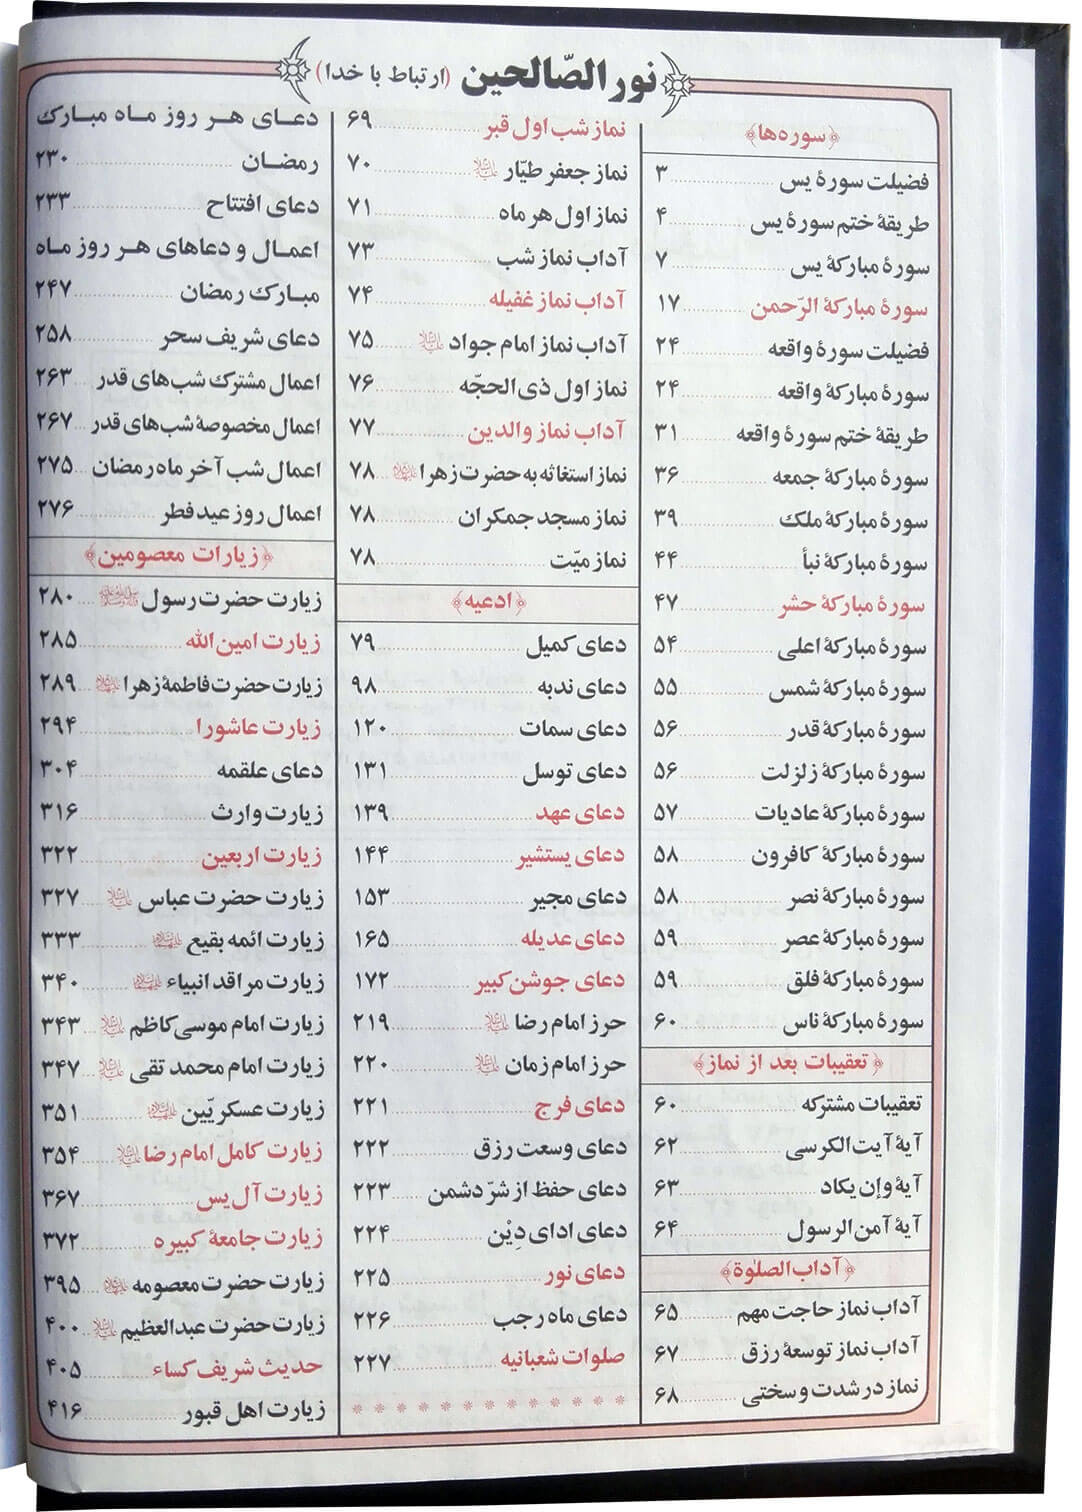 نور الصّالحین (ارتباط با خدا)
﴿سوره‌ها﴾
فضیلت سورهٔ یس ۳
طریقهٔ ختم سورهٔ یس ۴
سورهٔ مبارکهٔ یس ۷
سورهٔ مبارکهٔ الرّحمن ۱۷
فضیلت سورهٔ واقعه ۲۴
سورهٔ مبارکهٔ واقعه ۲۴
طریقهٔ ختم سورهٔ واقعه ۳۱
سورهٔ مبارکهٔ جمعه ۳۶
سورهٔ مبارکهٔ ملک ۳۹
سورهٔ مبارکهٔ نبأ ۴۴
سورهٔ مبارکهٔ حشر ۴۷
سورهٔ مبارکهٔ اعلی ۵۴
سورهٔ مبارکهٔ شمس ۵۵
سورهٔ مبارکهٔ قدر ۵۶
سورهٔ مبارکهٔ زلزلت ۵۶
سورهٔ مبارکهٔ عادیات ۵۷
سورهٔ مبارکهٔ کافرون ۵۸
سورهٔ مبارکهٔ نصر ۵۸
سورهٔ مبارکهٔ عصر ۵۹
سورهٔ مبارکهٔ فلق ۵۹
سورهٔ مبارکهٔ ناس ۶۰
﴿تعقیبات بعد از نماز﴾
تعقیبات مشترکه ۶۰
آیهٔ آیت الکرسی ۶۲
آیهٔ وإن یکاد ۶۳
آیهٔ آمن الرسول ۶۴
﴿آداب الصلوٰة﴾
آداب نماز حاجت مهم ۶۵
آداب نماز توسعهٔ رزق ۶۷
نماز در شدت و سختی ۶۸
نماز شب اول قبر ۶۹
نماز جعفر طیّار علیه‌السلام ۷۰
نماز اول هر ماه ۷۱
آداب نماز شب ۷۳
آداب نماز غفیله ۷۴
آداب نماز امام جواد علیه‌السلام ۷۵
نماز اول ذی الحجّه ۷۶
آداب نماز والدین ۷۷
نماز استغاثه به حضرت زهرا علیهاالسلام ۷۸
نماز مسجد جمکران ۷۸
نماز میّت ۷۸
﴿ادعیه﴾
دعای کمیل ۷۹
دعای ندبه ۹۸
دعای سمات ۱۲۰
دعای توسل ۱۳۱
دعای عهد ۱۳۹
دعای یستشیر ۱۴۴
دعای مجیر ۱۵۳
دعای عدیله ۱۶۵
دعای جوشن کبیر ۱۷۲
حرز امام رضا علیه‌السلام ۲۱۹
حرز امام زمان علیه‌السلام ۲۲۰
دعای فرج ۲۲۱
دعای وسعت رزق ۲۲۲
دعای حفظ از شرّ دشمن ۲۲۳
دعای ادای دِیْن ۲۲۴
دعای نور ۲۲۵
دعای ماه رجب ۲۲۶
صلوات شعبانیه ۲۲۷
دعـای هـر روز مـاه مبـارک
رمضـان ۲۳۰
دعای افتتاح ۲۳۳
اعمـال و دعاهای هـر روز مـاه
مبـارک رمضان ۲۴۷
دعای شریف سحر ۲۵۸
اعمال مشترک شب‌های قدر ۲۶۳
اعمال مخصوصهٔ شب‌های قدر ۲۶۷
اعمال شب آخر ماه رمضان ۲۷۵
اعمال روز عید فطر ۲۷۶
﴿زیارات معصومین﴾
زیارت حضرت رسول ﷺ ۲۸۰
زیارت امین الله ۲۸۵
زیارت حضرت فاطمهٔ زهرا علیهاالسلام ۲۸۹
زیارت عاشورا ۲۹۴
دعای علقمه ۳۰۴
زیارت وارث ۳۱۶
زیارت اربعین ۳۲۲
زیارت حضرت عباس علیه‌السلام ۳۲۷
زیارت ائمه بقیع علیهم‌السلام ۳۳۳
زیارت مراقد انبیاء علیهم‌السلام ۳۴۰
زیارت امام موسی کاظم علیه‌السلام ۳۴۳
زیارت امام محمد تقی علیه‌السلام ۳۴۷
زیارت عسکریّین علیهماالسلام ۳۵۱
زیارت کامل امام رضا علیه‌السلام ۳۵۴
زیارت آل یس ۳۶۷
زیارت جامعهٔ کبیره ۳۷۲
زیارت حضرت معصومه علیهاالسلام ۳۹۵
زیارت حضرت عبدالعظیم علیه‌السلام ۴۰۰
حدیث شریف کساء ۴۰۵
زیارت اهل قبور ۴۱۶